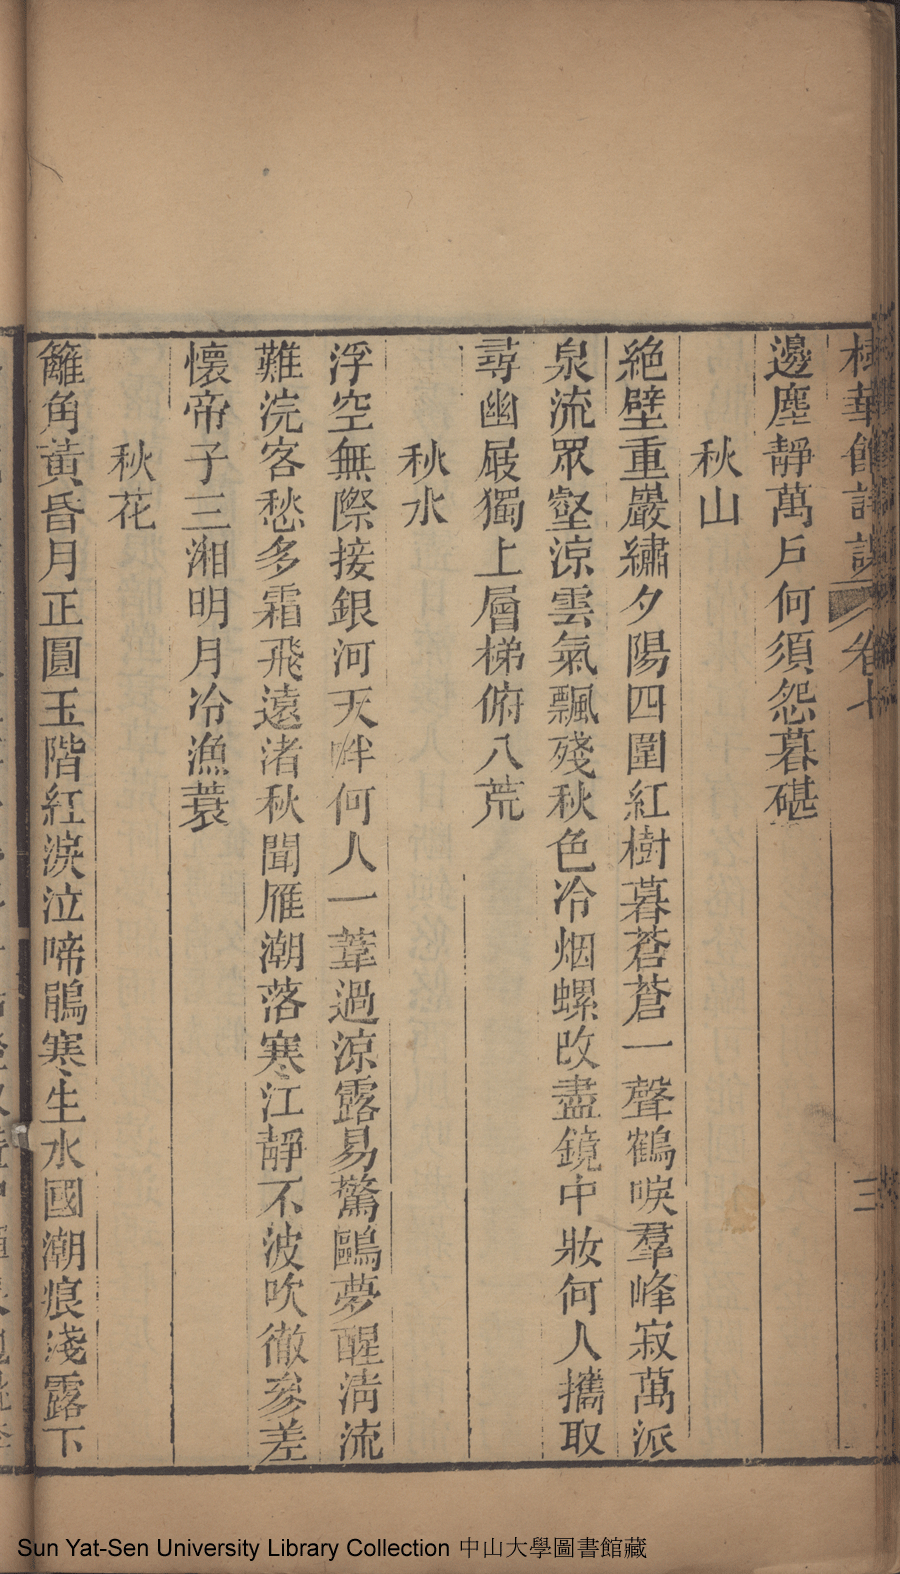 華館詩課 卷七 三
邊塵靜萬戶何須怨暮碪
秋山
絶壁重巖繡夕陽四圍紅樹暮蒼蒼一聲鶴唳羣峰寂萬派
泉流眾壑涼雲氣飄殘秋色冷烟螺改盡鏡中妝何人攜取
尋幽屐獨上層梯俯八荒
秋水
浮空無際接銀河天畔何人一葦過涼露易驚鷗夢醒淸流
難浣客愁多霜飛遠渚秋聞雁潮落寒江靜不波吹徹參差
懷帝子三湘明月冷漁蓑
秋花
籬角黃昏月正圓玉階紅淚泣啼鵑寒生水國潮痕淺露下
Sun Yat-Sen University Library Collection 中山大學圖書館藏